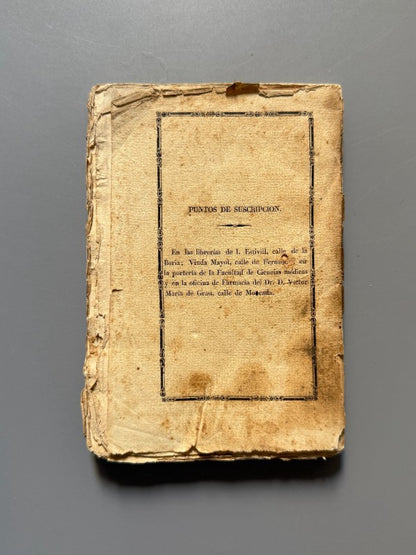 PUNTOS DE SUSCRIPCION.
En las librerías de I. Estivill, calle de la
Boria; Viuda Mayol, calle de Fernando; en
la portería de la Facultad de Ciencias médicas
y en la oficina de Farmacia del Dr. D. Victor
María de Grau, calle de Moncada.